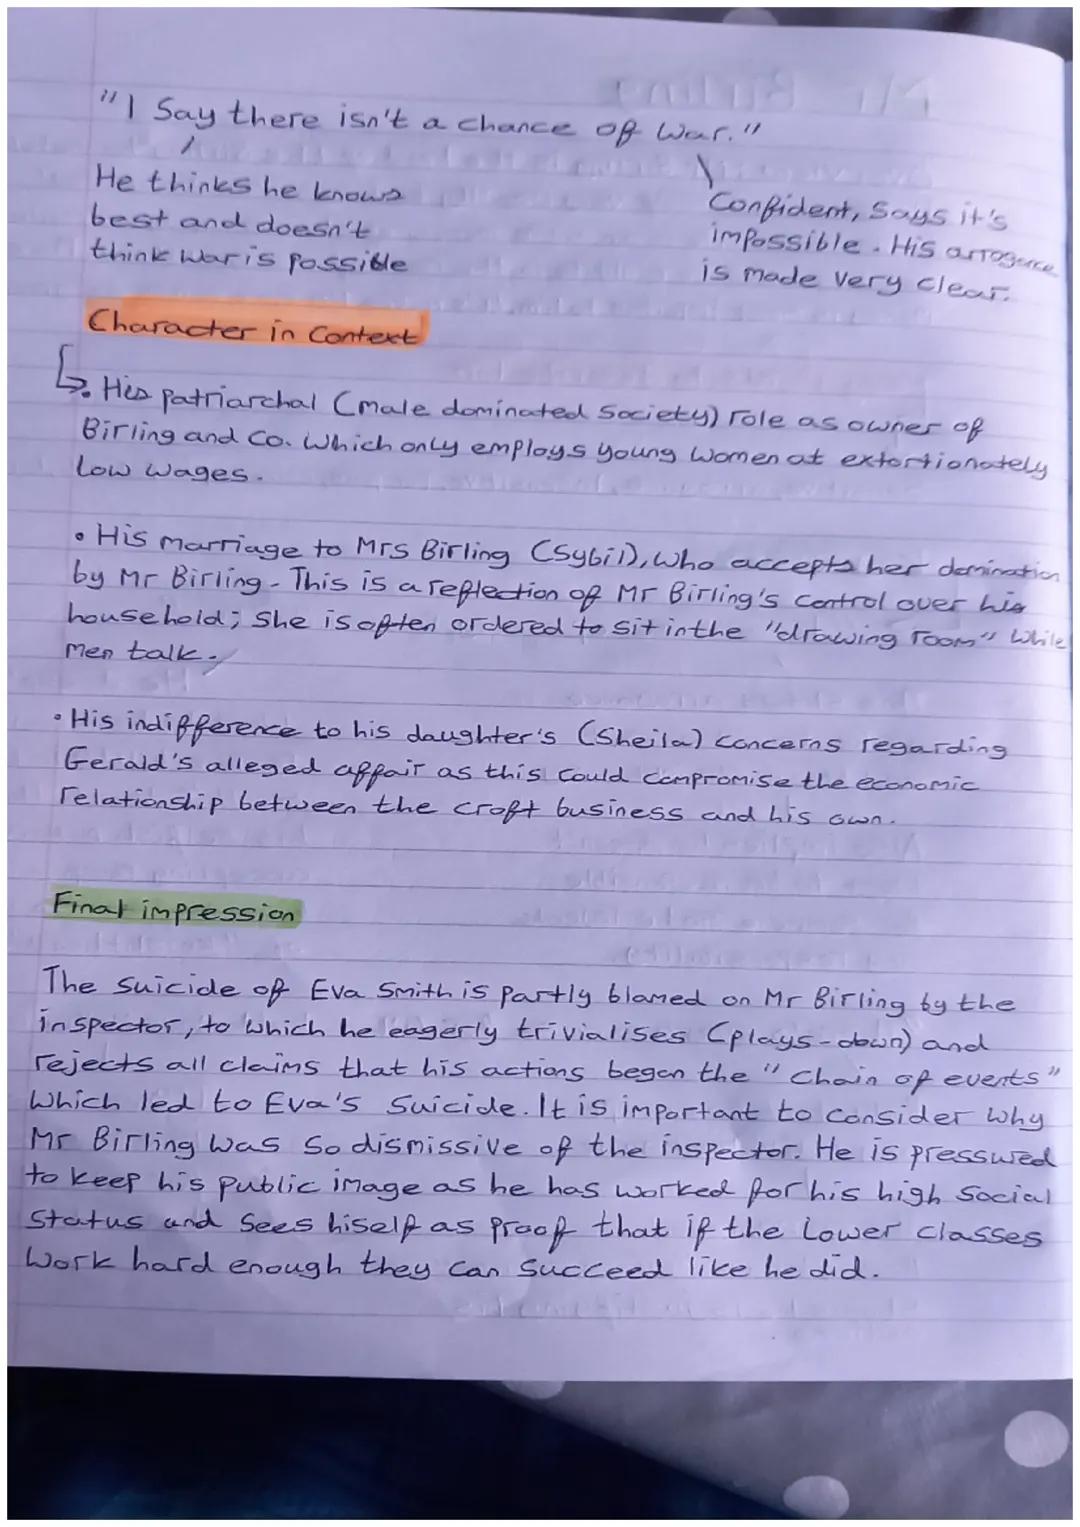 "I Say there isn't a chance of war."
He thinks he knows
best and doesn't
think war is possible
Confident, Says it's
impossible. His arrogance
is made very clear.
Character in Context
His patriarchal (male dominated Society) role as owner of
Birling and Co. Which only employs young women at extortionately
low wages.
• His marriage to Mrs Birling (Sybil), who accepts her domination
by Mr Birling. This is a reflection of Mr Birling's control over his
household; She is often ordered to sit in the "drawing room" while
men talk.
• His indifference to his daughter's (Sheila) concerns regarding
Gerald's alleged affair as this could compromise the economic
relationship between the croft business and his own.
Final impression
The Suicide of Eva Smith is partly blamed on Mr Birling by the
inspector, to which he eagerly trivialises (plays-down) and
rejects all claims that his actions began the "Chain of events"
Which led to Eva's Suicide. It is important to consider why
Mr Birling was so dismissive of the inspector. He is pressured
to keep his public image as he has worked for his high Social
Status and Sees hiself as proof that if the lower classes
Work hard enough they can succeed like he did.